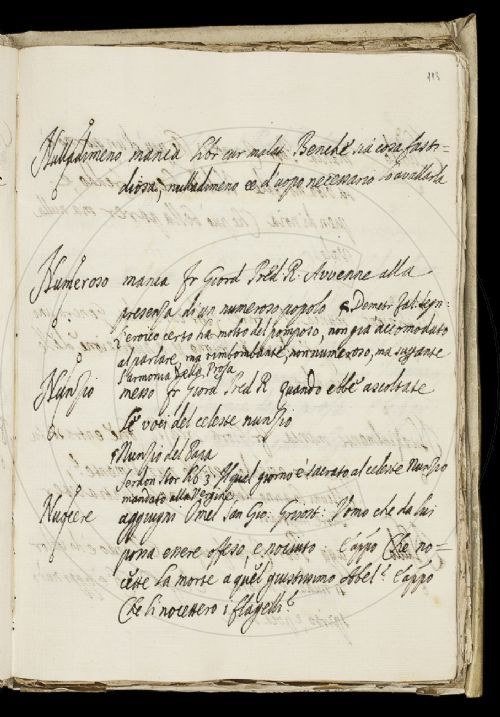 113
Nulladimeno manca libr cur malat Benche sia cosa fasti=
diosa, nulladimeno ce d'uopo necessario
Numeroso manca fr Giord Pred R. Avvenne alla
presenza di un numeroso popolo Demetr fal: segn:
l'eroico certo ha molto del pomposo, non già accomodato
al parlare, ma rimbombante, non numeroso, ma
l'armonia della Prosa
Nunzio messo fr Giord Pred R quando ebbe ascoltate
le voci del celeste nunzio
Nunzio del Papa
Serdon Stor R6 3 Quel giorno è sacrato al celeste Nunzio
mandato alla Vergine
Nuocere aggiugni Omel San Gio: Grisost: Uomo che da lui
possa essere ofeso, e nociuto E appo Che no=
cette la morte a quel giustissimo Abel E appo
Che li nocettero i flagelli